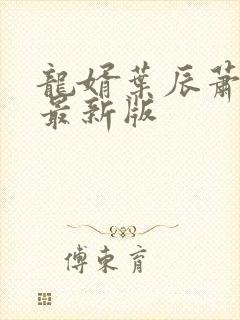 龍婿葉辰蕭
最新版
傅東育